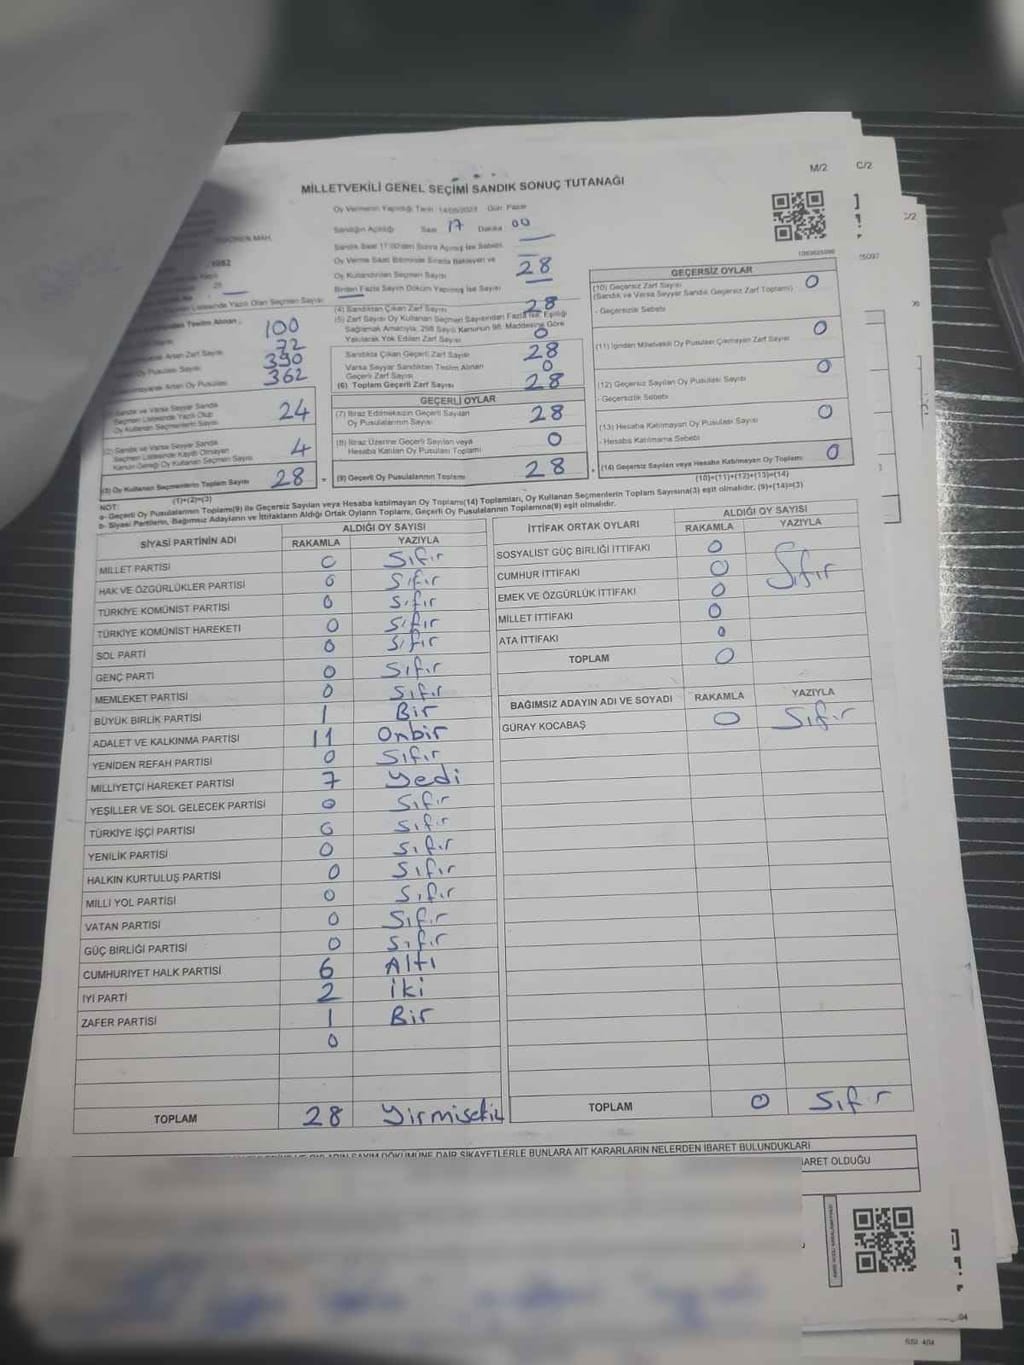 M/2
C/2
MİLLETVEKİLİ GENEL SEÇİMİ SANDIK SONUÇ TUTANAĞI
Oy Vermenin Yapıldığı Tarih 14/05/2023 Gün: Pazar
Sandığın Açıldığı Saat 17 Dakika 00
Sandık Saat 17:00'den Sonra Açılmış İse Sebebi
Oy Verme Saati Bitiminde Sırada Bekleyen ve
Oy Kullandırılan Seçmen Sayısı 28
Birden Fazla Sayım Döküm Yapılmış İse Sayısı
MAH.
1082
Listesinde Yazılı Olan Seçmen Sayısı
Teslim Alınan
100
Artan Zarf Sayısı 72
Oy Pusulası Sayısı 390
Artan Oy Pusulası 362
Sandık ve Varsa Seyyar Sandık
Seçmen Listesinde Yazılı Olup
Oy Kullanan Seçmenlerin Sayısı 24
(2) Sandık ve Varsa Seyyar Sandık
Seçmen Listesinde Kaydı Olmayan
Kanun Gereği Oy Kullanan Seçmen Sayısı 4
(3) Oy Kullanan Seçmenlerin Toplam Sayısı 28
(1)+(2)=(3)
(4) Sandıktan Çıkan Zarf Sayısı 28
(5) Zarf Sayısı Oy Kullanan Seçmen Sayısından Fazla İse, Eşitliği
Sağlamak Amacıyla, 298 Sayılı Kanunun 98. Maddesine Göre
Yakılarak Yok Edilen Zarf Sayısı 0
Sandıkta Çıkan Geçerli Zarf Sayısı 28
Varsa Seyyar Sandıktan Teslim Alınan
Geçerli Zarf Sayısı 0
(6) Toplam Geçerli Zarf Sayısı 28
GEÇERLİ OYLAR
(7) İtiraz Edilmeksizin Geçerli Sayılan
Oy Pusulalarının Sayısı 28
(8) İtiraz Üzerine Geçerli Sayılan veya
Hesaba Katılan Oy Pusulaları Toplamı 0
(9) Geçerli Oy Pusulalarının Toplamı 28
GEÇERSİZ OYLAR
(10) Geçersiz Zarf Sayısı
(Sandık ve Varsa Seyyar Sandık Geçersiz Zarf Toplamı) 0
- Geçersizlik Sebebi
(11) İçinden Milletvekili Oy Pusulası Çıkmayan Zarf Sayısı 0
(12) Geçersiz Sayılan Oy Pusulası Sayısı 0
- Geçersizlik Sebebi
(13) Hesaba Katılmayan Oy Pusulası Sayısı 0
- Hesaba Katılmama Sebebi
(14) Geçersiz Sayılan veya Hesaba Katılmayan Oy Toplamı 0
(10)+(11)+(12)+(13)=(14)
NOT:
a- Geçerli Oy Pusulalarının Toplamı(9) ile Geçersiz Sayılan veya Hesaba katılmayan Oy Toplamı(14) Toplamları, Oy Kullanan Seçmenlerin Toplam Sayısına(3) eşit olmalıdır. (9)+(14)=(3)
b- Siyasi Partilerin, Bağımsız Adayların ve İttifakların Aldığı Ortak Oyların Toplamı, Geçerli Oy Pusulalarının Toplamına(9) eşit olmalıdır.
SİYASİ PARTİNİN ADI ALDIĞI OY SAYISI
RAKAMLA YAZIYLA
MİLLET PARTİSİ 0 Sıfır
HAK VE ÖZGÜRLÜKLER PARTİSİ 0 Sıfır
TÜRKİYE KOMÜNİST PARTİSİ 0 Sıfır
TÜRKİYE KOMÜNİST HAREKETİ 0 Sıfır
SOL PARTİ 0 Sıfır
GENÇ PARTİ 0 Sıfır
MEMLEKET PARTİSİ 0 Sıfır
BÜYÜK BİRLİK PARTİSİ 1 Bir
ADALET VE KALKINMA PARTİSİ 11 Onbir
YENİDEN REFAH PARTİSİ 0 Sıfır
MİLLİYETÇİ HAREKET PARTİSİ 7 Yedi
YEŞİLLER VE SOL GELECEK PARTİSİ 0 Sıfır
TÜRKİYE İŞÇİ PARTİSİ 0 Sıfır
YENİLİK PARTİSİ 0 Sıfır
HALKIN KURTULUŞ PARTİSİ 0 Sıfır
MİLLİ YOL PARTİSİ 0 Sıfır
VATAN PARTİSİ 0 Sıfır
GÜÇ BİRLİĞİ PARTİSİ 0 Sıfır
CUMHURİYET HALK PARTİSİ 6 Altı
İYİ PARTİ 2 İki
ZAFER PARTİSİ 1 Bir
0
TOPLAM 28 Yirmisekiz
İTTİFAK ORTAK OYLARI ALDIĞI OY SAYISI
RAKAMLA YAZIYLA
SOSYALİST GÜÇ BİRLİĞİ İTTİFAKI 0
CUMHUR İTTİFAKI 0 Sıfır
EMEK VE ÖZGÜRLÜK İTTİFAKI 0
MİLLET İTTİFAKI 0
ATA İTTİFAKI 0
TOPLAM 0
BAĞIMSIZ ADAYIN ADI VE SOYADI RAKAMLA YAZIYLA
GÜRAY KOCABAŞ 0 Sıfır
TOPLAM 0 Sıfır
SAYIM DÖKÜMÜNE DAİR ŞİKAYETLERLE BUNLARA AİT KARARLARIN NELERDEN İBARET BULUNDUKLARI
İBARET OLDUĞU